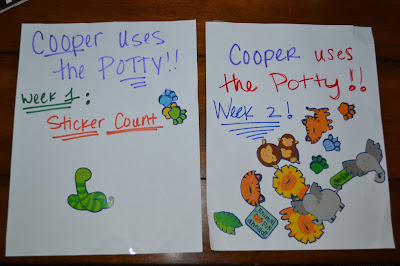 Cooper uses
the Potty!!
Week 1:
Sticker Count
Cooper uses
the Potty!!
Week 2!